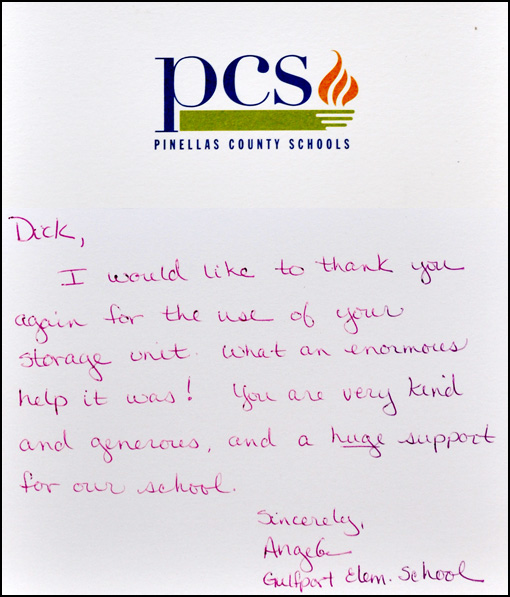 pcs
PINELLAS COUNTY SCHOOLS
Dick,
I would like to thank you
again for the use of your
storage unit. What an enormous
help it was! You are very kind
and generous, and a huge support
for our school.
Sincerely,
Angela
Gulfport Elem. School